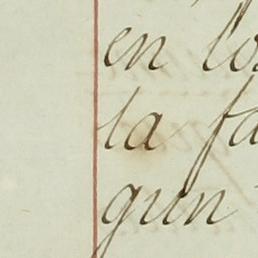 en lo
la fa
gun